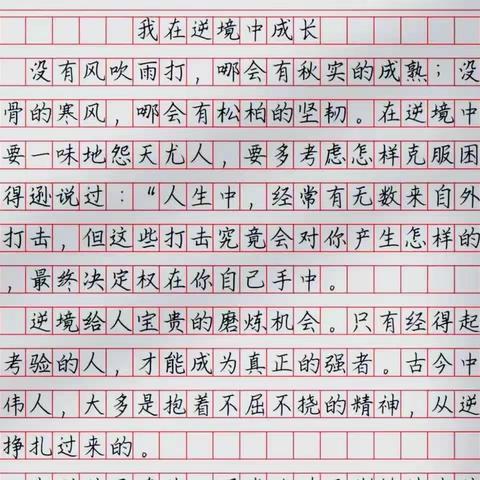 我在逆境中成长
没有风吹雨打，哪会有秋实的成熟；没
骨的寒风，哪会有松柏的坚韧。在逆境中
要一味地怨天尤人，要多考虑怎样克服困
得逊说过：“人生中，经常有无数来自外
打击，但这些打击究竟会对你产生怎样的
，最终决定权在你自己手中。
逆境给人宝贵的磨炼机会。只有经得起
考验的人，才能成为真正的强者。古今中
伟人，大多是抱着不屈不挠的精神，从逆
挣扎过来的。